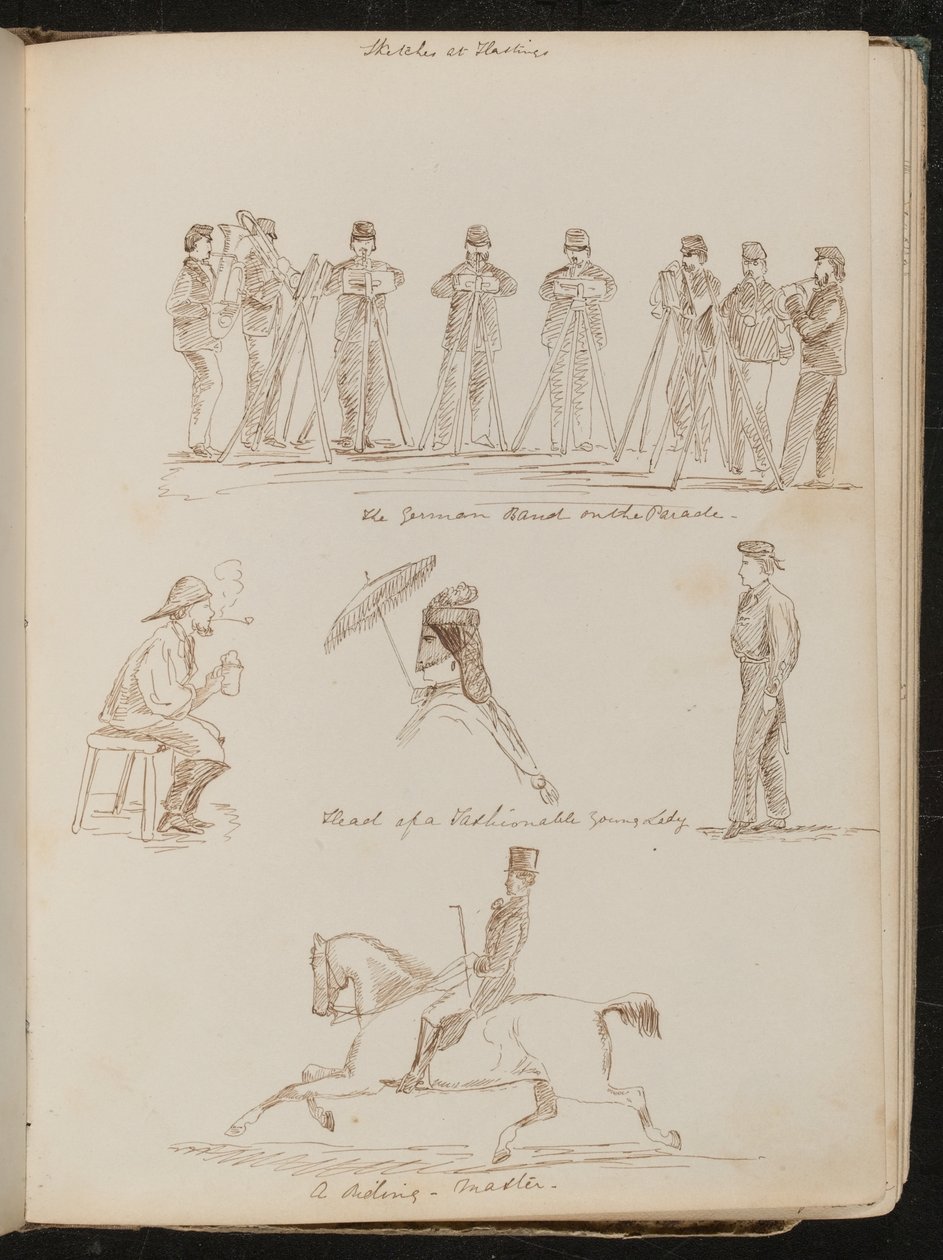 Sketches at Hastings
The German Band on the Parade -
Head of a Fashionable Young Lady
A Riding - Master -